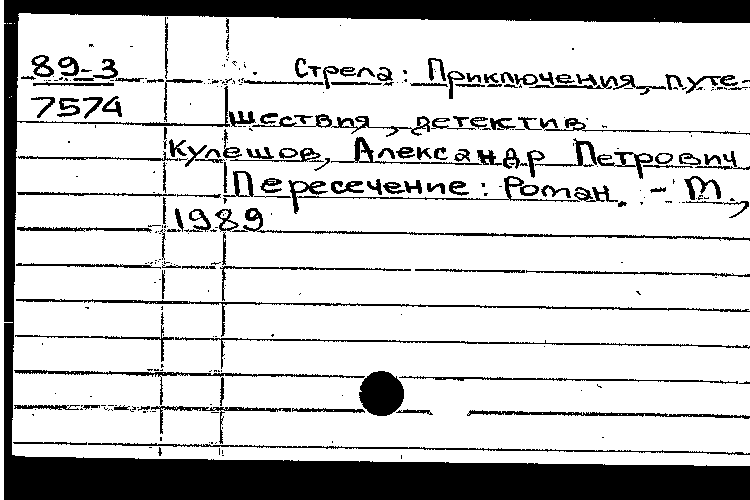 89-3 Стрела: Приключения, путе-
7574 шествия, детектив.
Кулешов, Александр Петрович
Пересечение: Роман. - М.,
1989